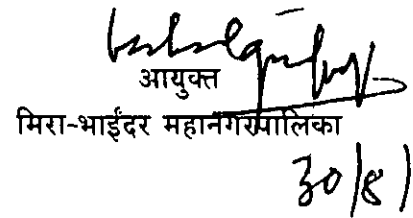 आयुक्त
मिरा-भाईंदर महानगरपालिका
30/8/